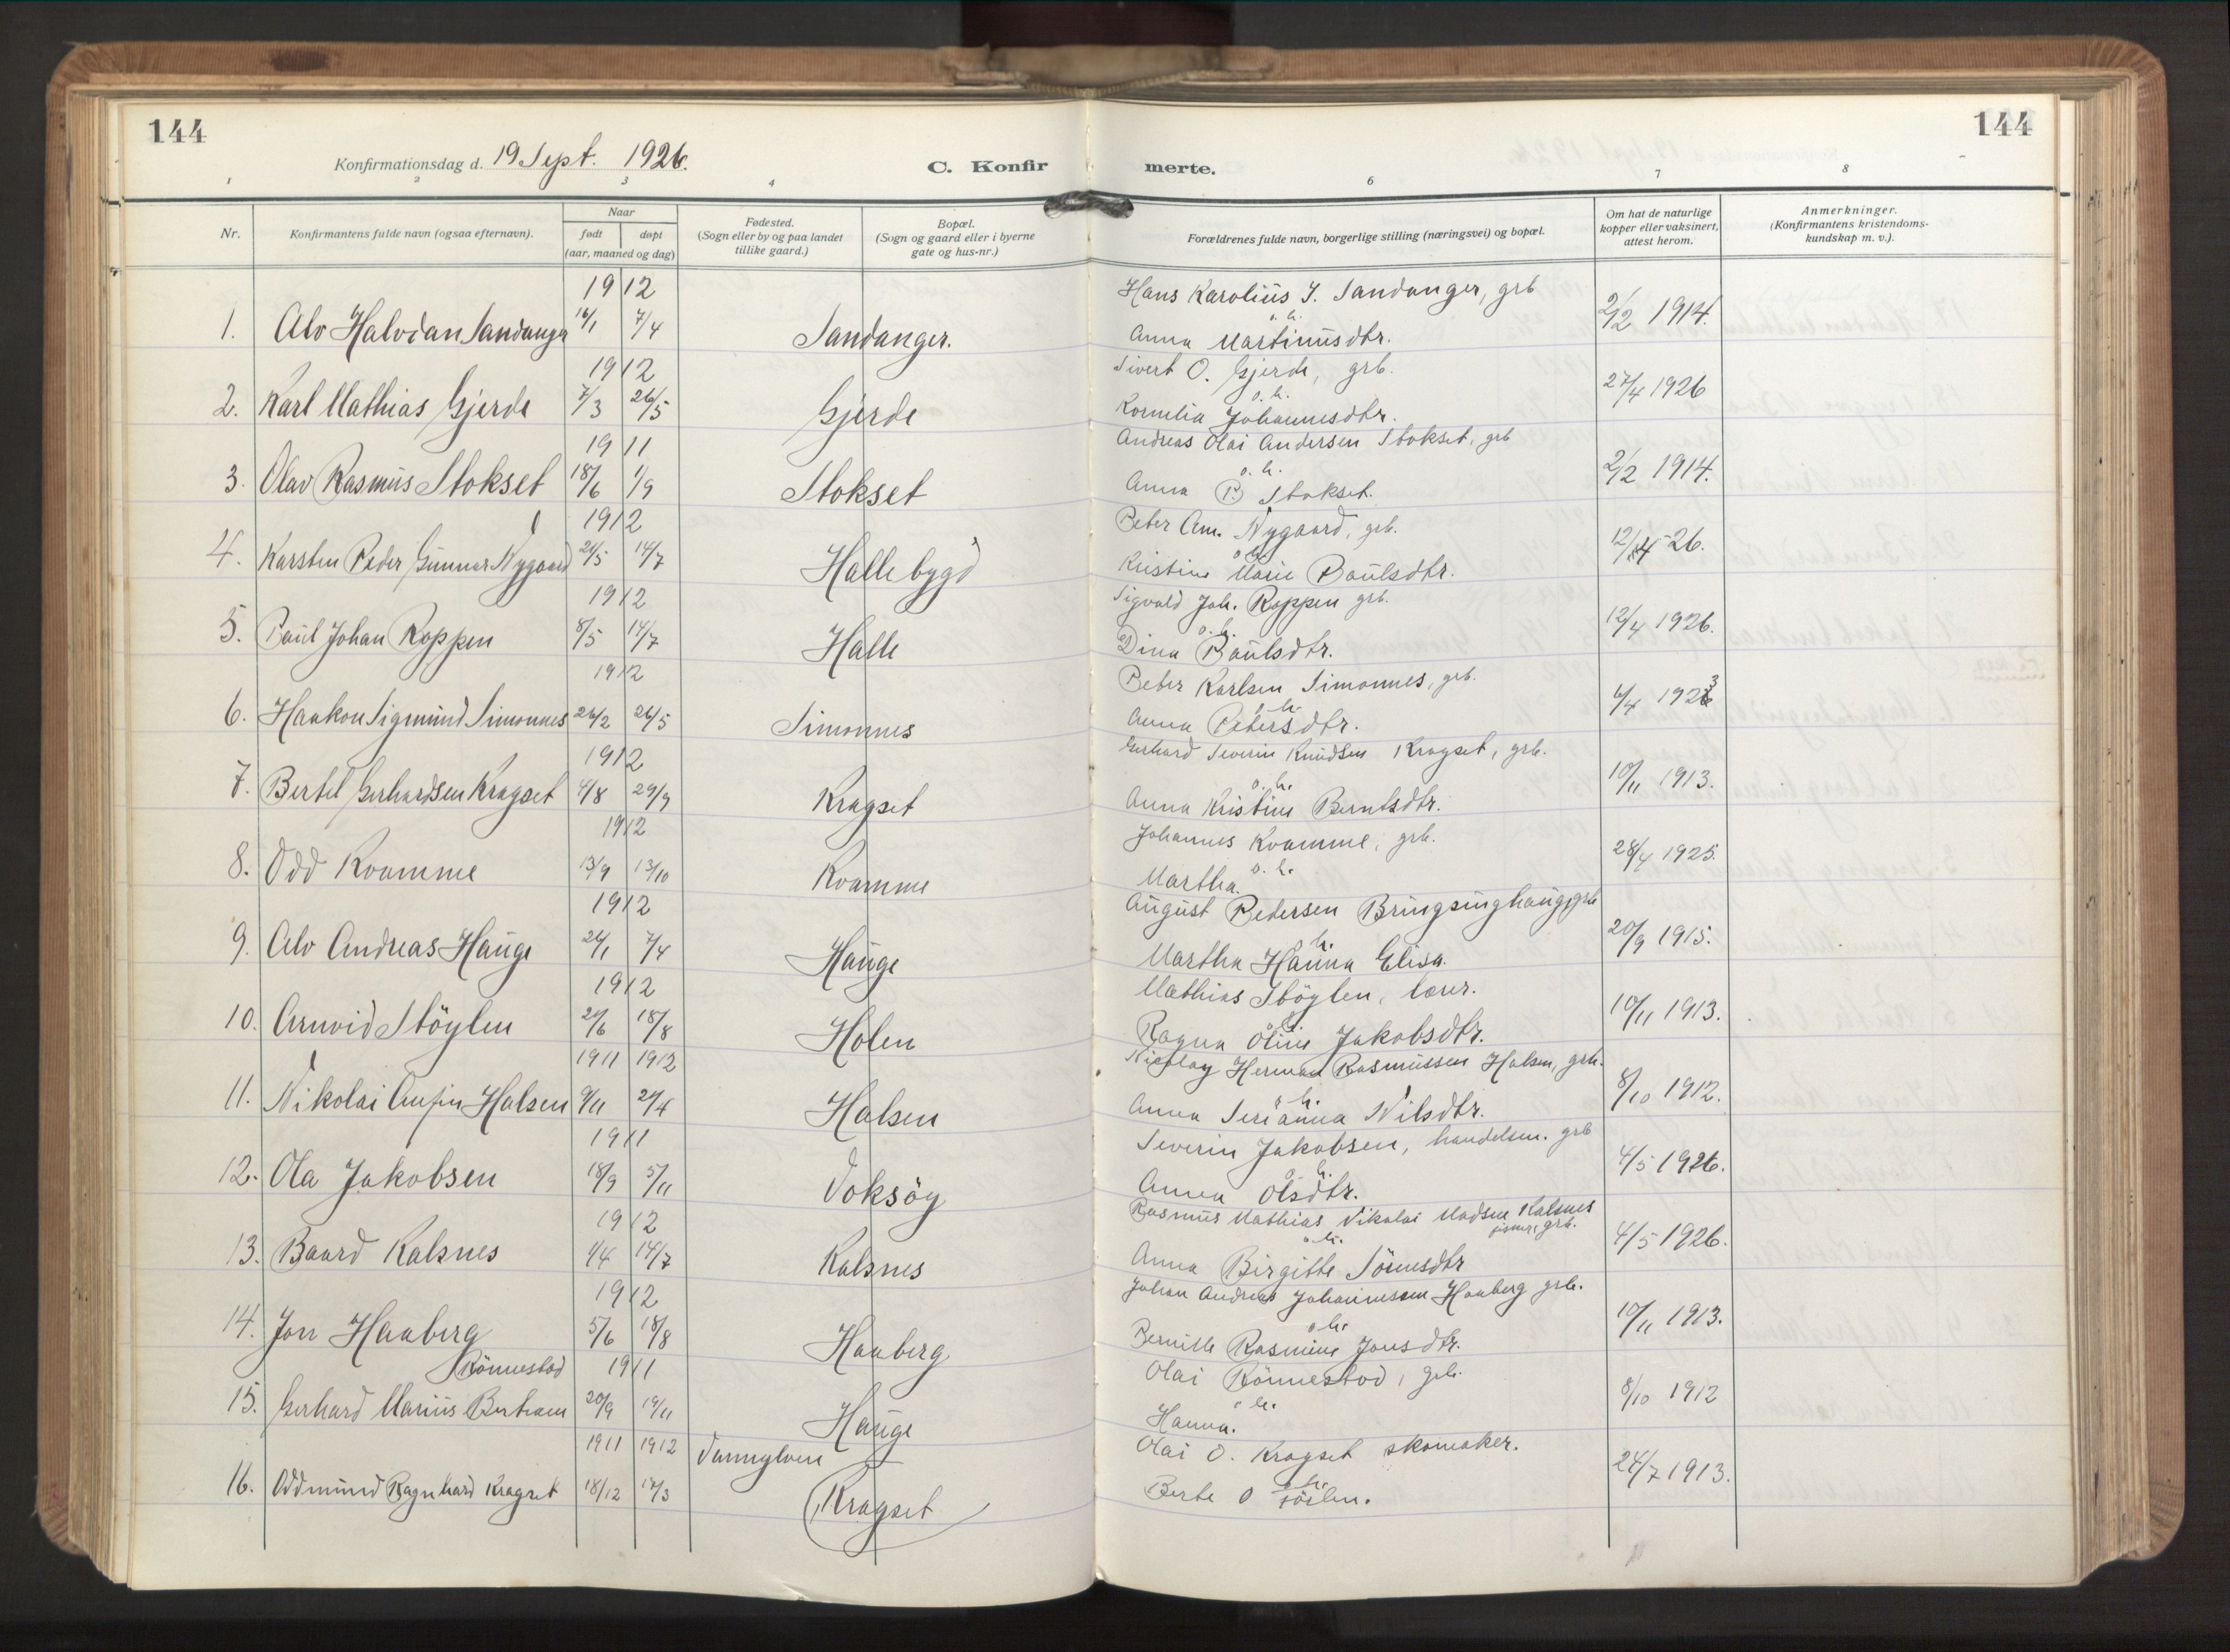 144
144
Konfirmationsdag d. 19 Sept. 1926.
C. Konfirmerte.
1 2 3 4 6 7 8
Nr.
Konfirmantens fulde navn (ogsaa efternavn).
Naar
født døpt
(aar, maaned og dag)
Fødested.
(Sogn eller by og paa landet
tillike gaard.)
Bopæl.
(Sogn og gaard eller i byerne
gate og hus-nr.)
Forældrenes fulde navn, borgerlige stilling (næringsvei) og bopæl.
Om hat de naturlige
kopper eller vaksinert,
attest herom.
Anmerkninger.
(Konfirmantens kristendoms-
kundskap m. v.).
1912 Hans Karolius J. Sandanger, grb
1. Alv Halvdan Sandanger 16/1 7/4 Sandanger. o. h. 2/12 1914.
Anna Martinusdtr.
1912 Sivert O. Gjerde, grb.
2. Karl Mathias Gjerde 7/3 26/5 Gjerde o. h. 27/4 1926
Kornelia Johannesdtr.
1911 Andreas Olai Andersen Stokset, grb
3. Olav Rasmus Stokset 18/6 1/9 Stokset o. h. 2/12 1914.
Anna P. Stokset.
1912 Peter Am. Nygaard, grb.
4. Karsten Peder Gunnar Nygaard 21/5 14/7 Hallebygd o h. 12/4 26.
Kristine Marie Paulsdtr.
1912 Sigvald Joh. Roppen grb.
5. Paul Johan Roppen 8/5 14/7 Halle o. h. 12/4 1926.
Dina Paulsdtr.
1912 Peter Karlsen Simonnes, grb.
6. Haakon Sigmund Simonnes 26/2 26/5 Simonnes o h. 6/4 1923
Anna Petersdtr.
1912 Gerhard Severin Knudsen Kragset, grb.
7. Bertel Gerhardsen Kragset 4/8 29/9 Kragset o. h. 10/11 1913.
Anna Kristine Berntsdtr.
1912 Johannes Kvamme, grb.
8. Odd Kvamme 13/9 13/10 Kvamme o. h. 28/4 1925.
Martha.
1912 August Petersen Bringsinghaug grb
9. Alv Andreas Hauge 24/1 7/4 Hauge o h. 20/9 1915.
Martha Hanna Elisa.
1912 Mathias Støylen, lærer.
10. Arnvid Stöylen 29/6 18/8 Holen 10/11 1913.
Ragna Oline Jakobsdtr.
1911 1912 Nicolay Herman Rasmussen Halsen, grb.
11. Nikolai Anfin Halsen 9/11 21/4 Halsen o h. 8/10 1912.
Anna Serianna Nilsdtr.
1911 Severin Jakobsen, handelsm. grb
12. Ola Jakobsen 18/9 5/11 Voksöy o. h. 4/5 1926.
Anna Olsdtr.
1912 Rasmus Mathias Nikolai Madsen Kalsnes
fisker, grb.
13. Baard Kalsnes 1/4 14/7 Kalsnes o h. 4/5 1926.
Anna Birgitte Sörensdtr
1912 Johan Andreas Johannessen Haaberg grb.
14. Jon Haaberg 5/6 18/8 Haaberg o h. 10/11 1913.
Pernille Rasmine Jonsdtr.
Rönnestad 1911 Olai Rönnestad, grb.
15. Gerhard Marius Bertram 20/9 19/11 Hauge o h. 8/10 1912
Hanna.
1911 1912 Vannylven Olai O. Kragset skomaker.
16. Oddmund Ragnhard Kragset 18/12 17/3 Kragset o h. 24/7 1913.
Berte O